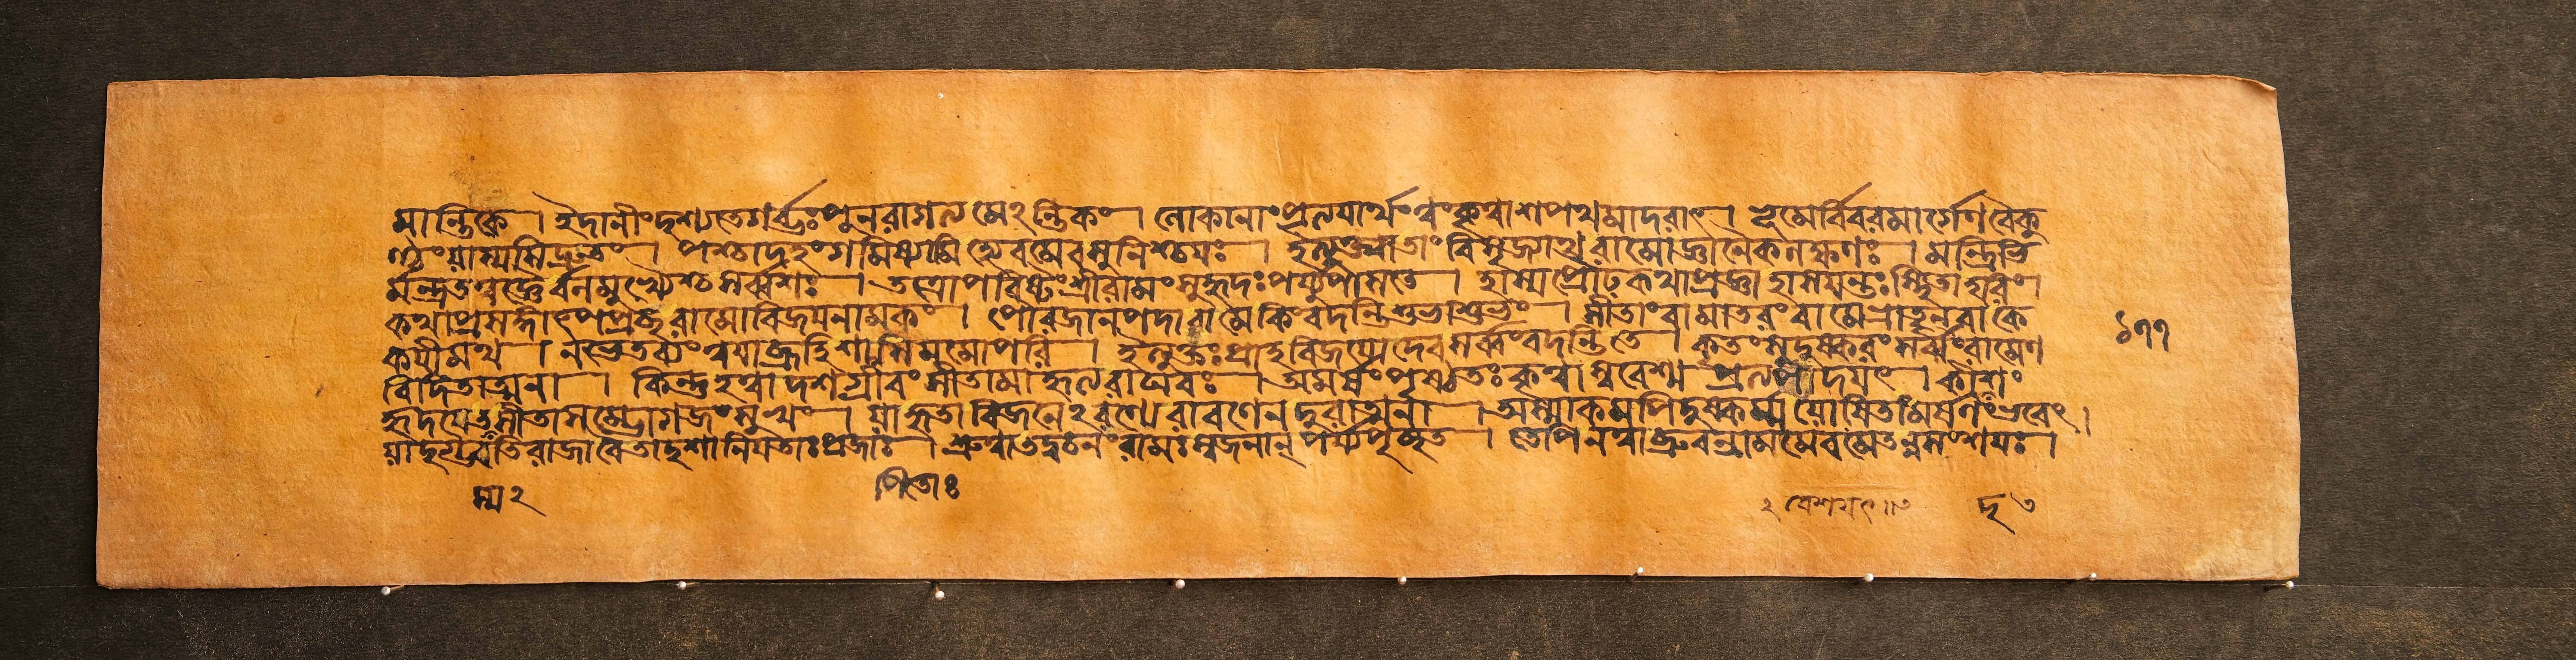 মান্তিকে । ইদানীং দৃশ্যতেগর্ব্ভঃপুনরাগত্য মেঽন্তিকং । লোকানাং প্রত্যয়ার্থং ত্বং কৃত্বাশপথমাদরাৎ । ভূমের্বিবরমার্গেণ বৈকু
ণ্ঠং যাস্যসিদ্রুতং । পশ্চাদহংগমিষ্যামি হ্যেবমেবসুনিশ্চয়ঃ । ইত্যুক্ত্বাতাং বিসৃজ্যাথ রামোজ্ঞানৈকলক্ষণঃ । মন্ত্রিভি
র্মন্ত্রতত্বজ্ঞৈর্বলমুখ্যৈশ্চ সর্ব্বশঃ । তত্রোপবিষ্টংশ্রীরামং সুহৃদঃপর্য্যুপাসতে । হাস্যপ্রৌঢকথাপ্রজ্ঞা হাসয়ন্তঃ স্থিতাহরিং ।
কথাপ্রসঙ্গাৎপপ্রচ্ছ রামোবিজয়নামকং । পৌরজানপদাবামে কিংবদন্তিশুভাশুভং । সীতাংবামাতরং বামেভ্রাতৄনবাকৈ
কয়ীমথ । নভেতব্যং ত্বয়াব্রূহিশামিমমোপরি । ইত্যুক্তঃপ্রাহবিজয়োদেবসর্ব্বংবদন্তিতে । কৃতংসুদুষ্করং সর্ব্বংরামেণ
বিদিতাত্মনা । কিন্তুহত্বাদশগ্রীবং সীতামাহৃত্যরাঘবঃ । অমর্ষংপৃষ্ঠতঃকৃত্বাস্ববেশ্ম প্রত্যপাদয়ৎ । কীদৃশং
হৃদয়েতস্যসীতাসম্ভোগজংসুখং । যাহৃতাবিজনেঽরণ্যেরাবণেন দুরাত্মনা । অস্মাকমপিদুষ্কর্ম্মযোষিতাংমর্ষণংভবেৎ ।
যাদৃগ্ভবতিরাজাবৈতাদৃশানিয়তাঃপ্রজাঃ । শ্রুত্বাতদ্বচনংরামঃস্বজনান্ পর্য্যপৃচ্ছত । তেপিনত্বাব্রুবন্রামমেবমেতন্নসংশয়ঃ ।
১৭৭